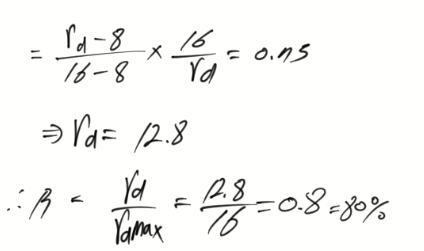 = (γd - 8)/(16 - 8) × 16/γd = 0.75
⇒ γd = 12.8
∴ β = γd/γdmax = 12.8/16 = 0.8 = 80%